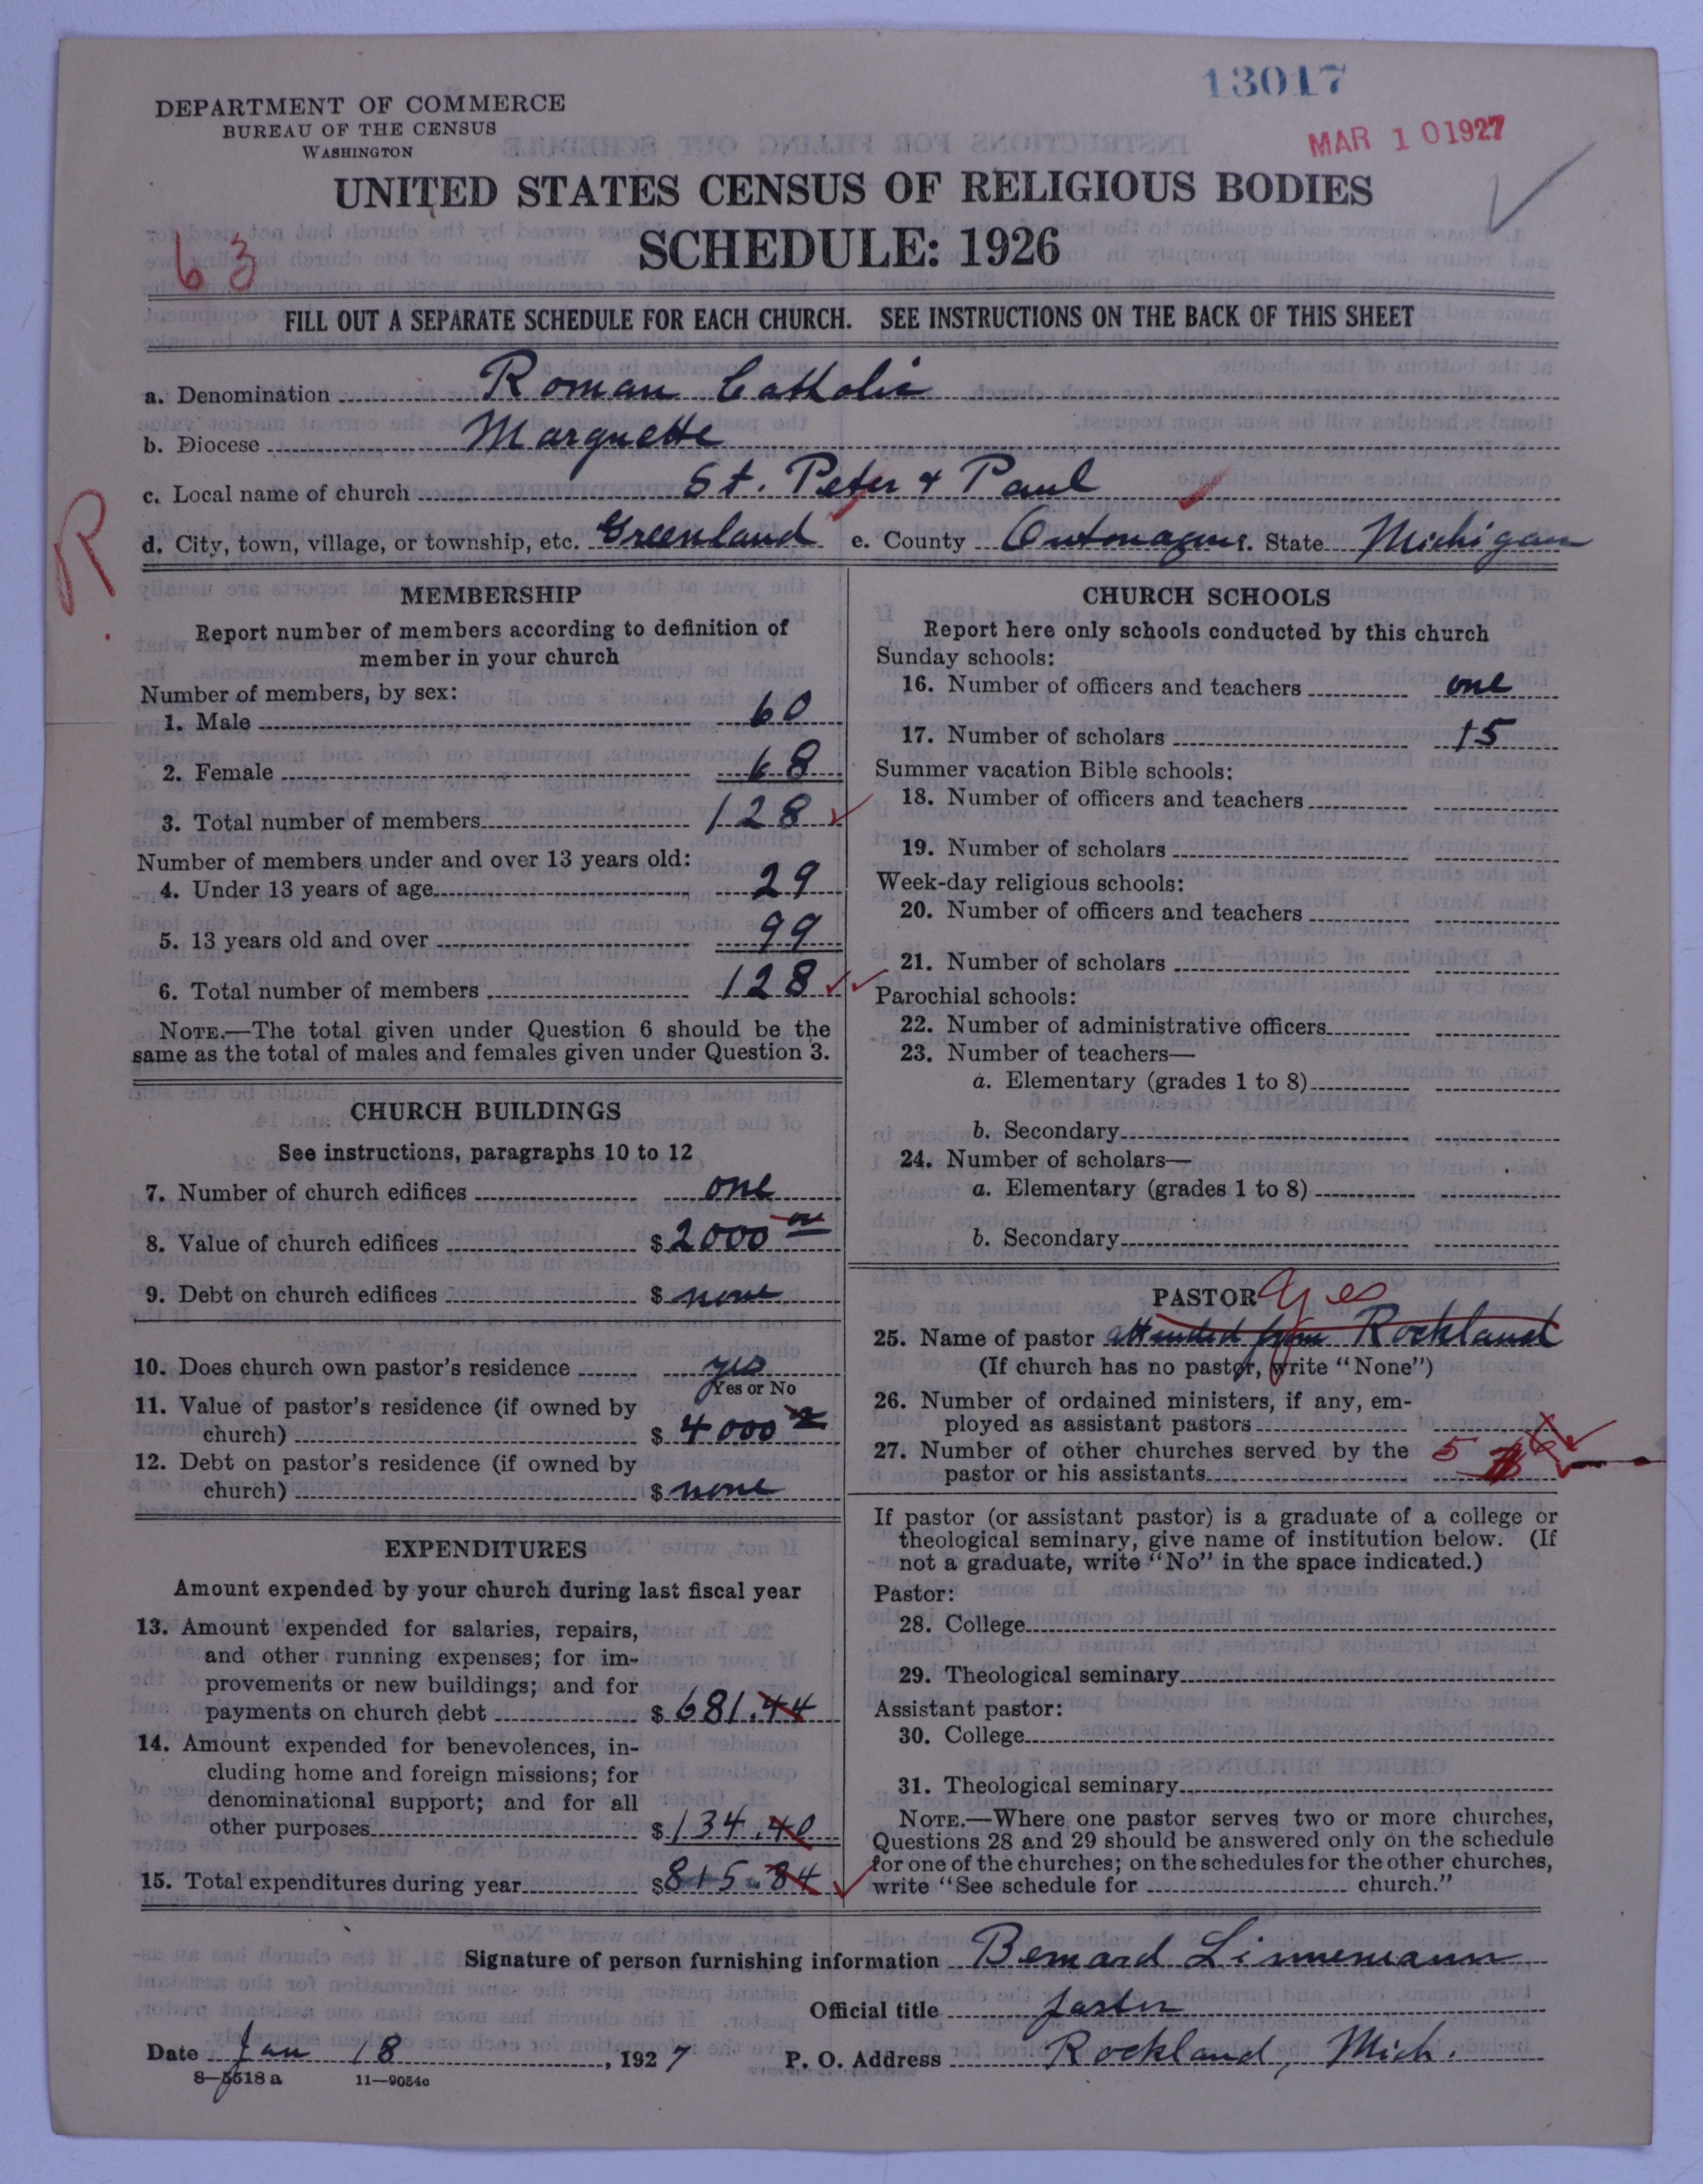 13017
DEPARTMENT OF COMMERCE
BUREAU OF THE CENSUS
WASHINGTON
MAR 10 1927
UNITED STATES CENSUS OF RELIGIOUS BODIES
SCHEDULE: 1926
63
FILL OUT A SEPARATE SCHEDULE FOR EACH CHURCH. SEE INSTRUCTIONS ON THE BACK OF THIS SHEET
a. Denomination Roman Catholic
b. Diocese Marquette
c. Local name of church St. Peter & Paul
R
d. City, town, village, or township, etc. Greenland e. County Ontonagon f. State Michigan
MEMBERSHIP
Report number of members according to definition of
member in your church
Number of members, by sex:
1. Male 60
2. Female 68
3. Total number of members 128
Number of members under and over 13 years old:
4. Under 13 years of age 29
5. 13 years old and over 99
6. Total number of members 128
NOTE.—The total given under Question 6 should be the
same as the total of males and females given under Question 3.
CHURCH BUILDINGS
See instructions, paragraphs 10 to 12
7. Number of church edifices one
8. Value of church edifices $ 2000 00
9. Debt on church edifices $ none
10. Does church own pastor's residence yes
Yes or No
11. Value of pastor's residence (if owned by
church) $ 4000
12. Debt on pastor's residence (if owned by
church) $ none
EXPENDITURES
Amount expended by your church during last fiscal year
13. Amount expended for salaries, repairs,
and other running expenses; for im-
provements or new buildings; and for
payments on church debt $ 681.44
14. Amount expended for benevolences, in-
cluding home and foreign missions; for
denominational support; and for all
other purposes $ 134.40
15. Total expenditures during year $ 815.84
CHURCH SCHOOLS
Report here only schools conducted by this church
Sunday schools:
16. Number of officers and teachers one
17. Number of scholars 15
Summer vacation Bible schools:
18. Number of officers and teachers
19. Number of scholars
Week-day religious schools:
20. Number of officers and teachers
21. Number of scholars
Parochial schools:
22. Number of administrative officers
23. Number of teachers—
a. Elementary (grades 1 to 8)
b. Secondary
24. Number of scholars—
a. Elementary (grades 1 to 8)
b. Secondary
PASTOR yes
25. Name of pastor attended from Rockland
(If church has no pastor, write "None")
26. Number of ordained ministers, if any, em-
ployed as assistant pastors
27. Number of other churches served by the 5
pastor or his assistants
If pastor (or assistant pastor) is a graduate of a college or
theological seminary, give name of institution below. (If
not a graduate, write "No" in the space indicated.)
Pastor:
28. College
29. Theological seminary
Assistant pastor:
30. College
31. Theological seminary
NOTE.—Where one pastor serves two or more churches,
Questions 28 and 29 should be answered only on the schedule
for one of the churches; on the schedules for the other churches,
write "See schedule for church."
Signature of person furnishing information Bernard Linnemann
Official title Pastor
Date Jan 18, 1927 P. O. Address Rockland, Mich.
8—5518 a 11—9054o